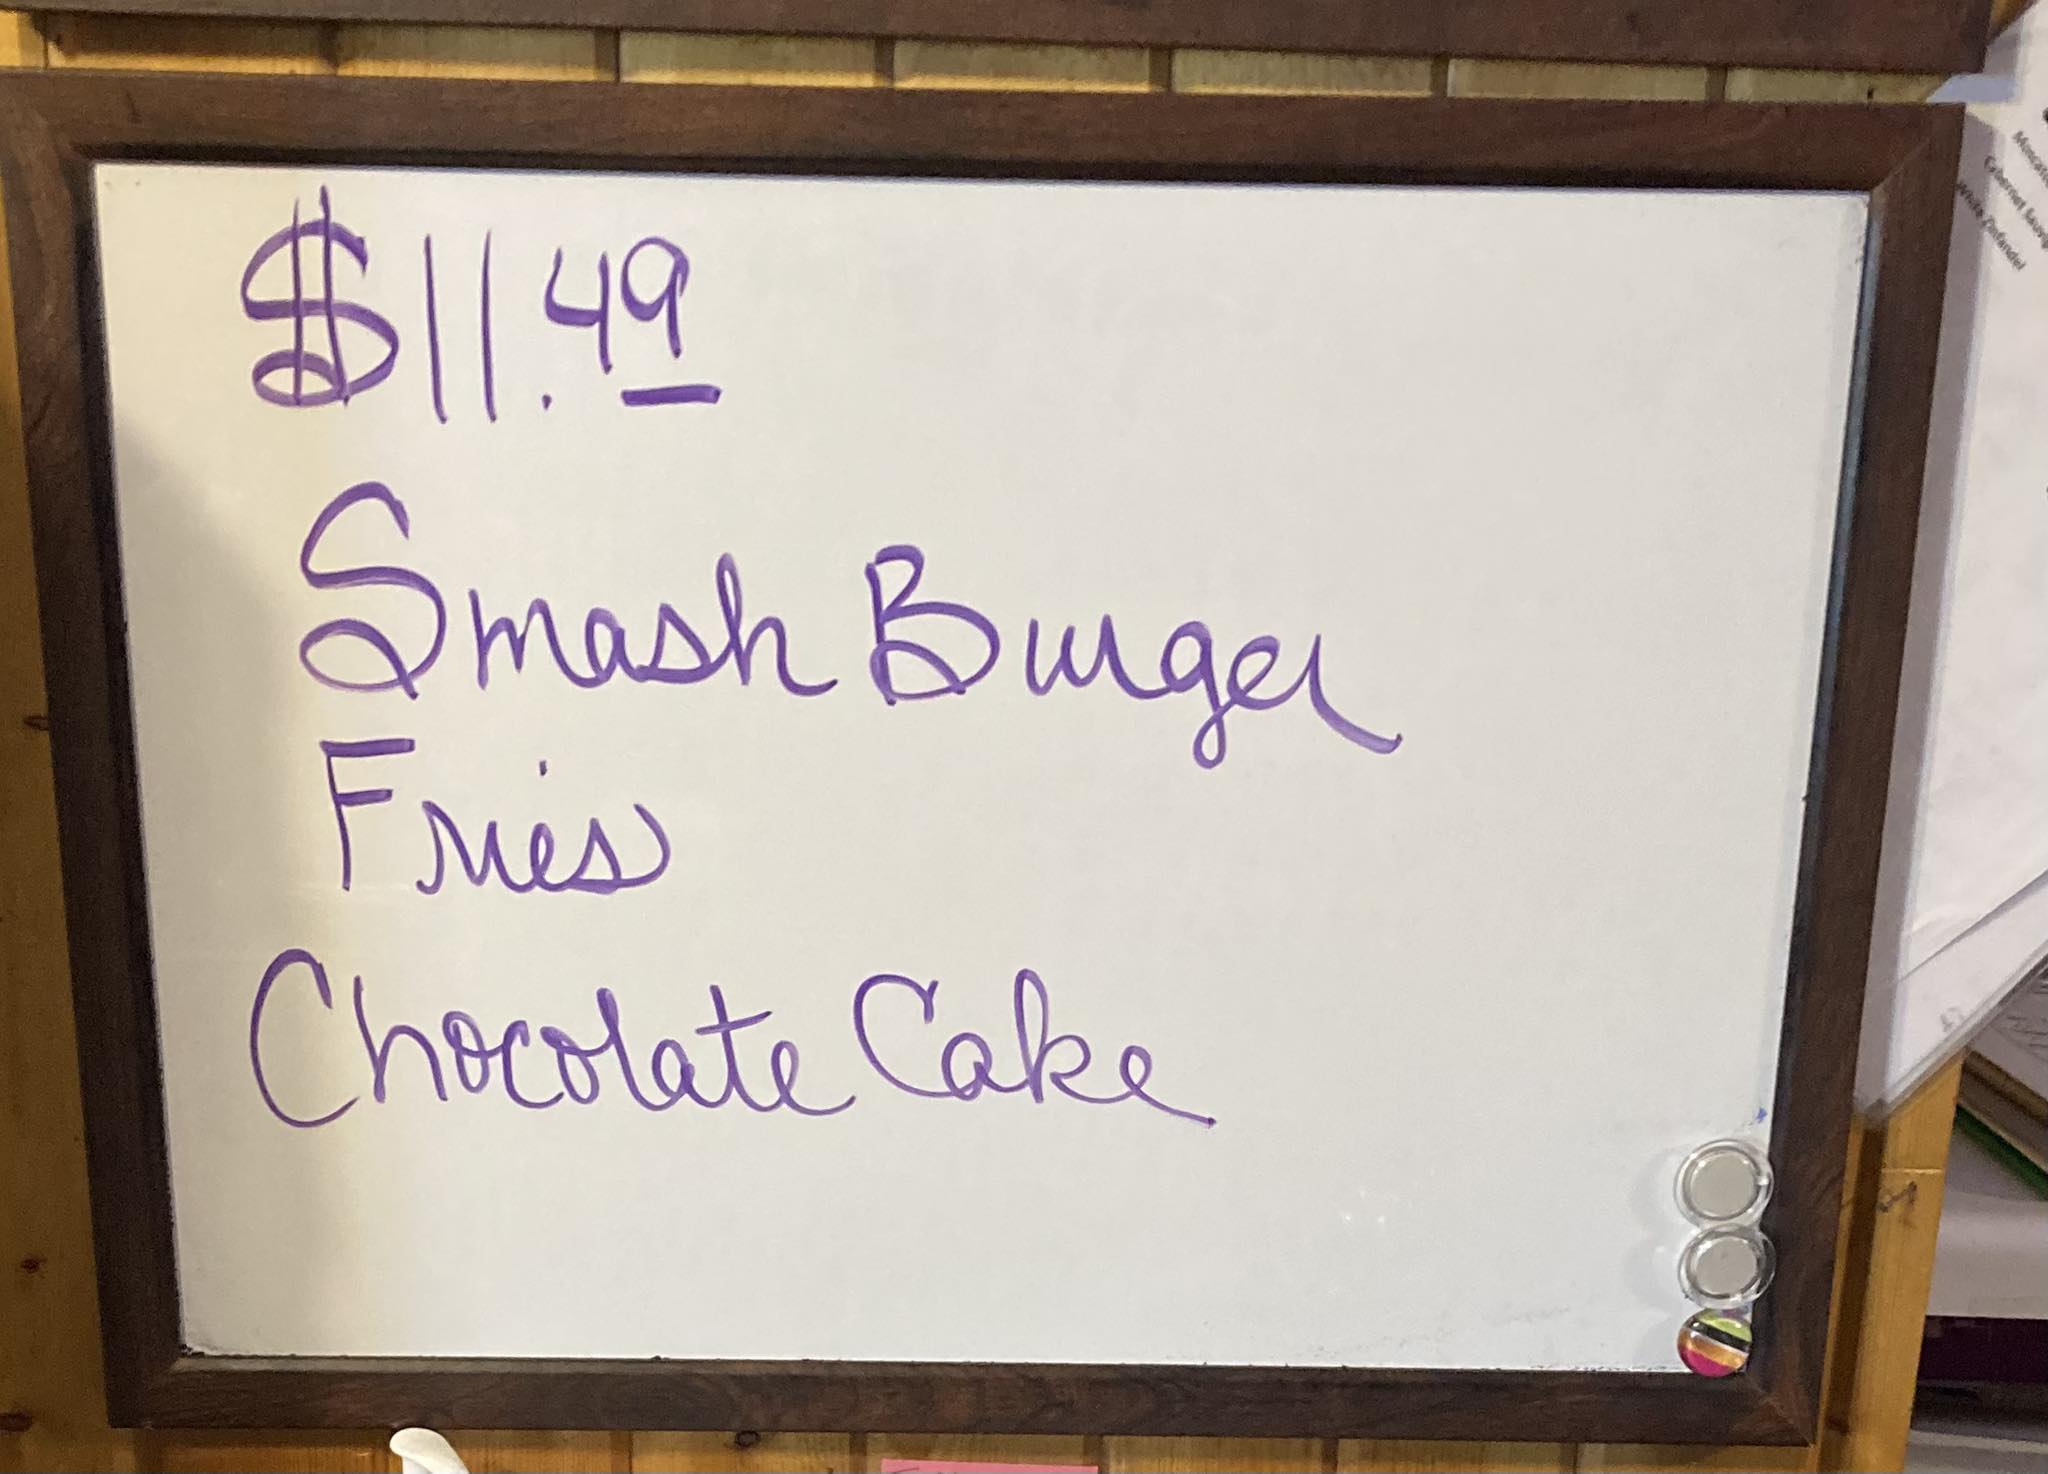 $11.49
Smash Burger
Fries
Chocolate Cake
Cabernet Sauvig
White Zinfandel